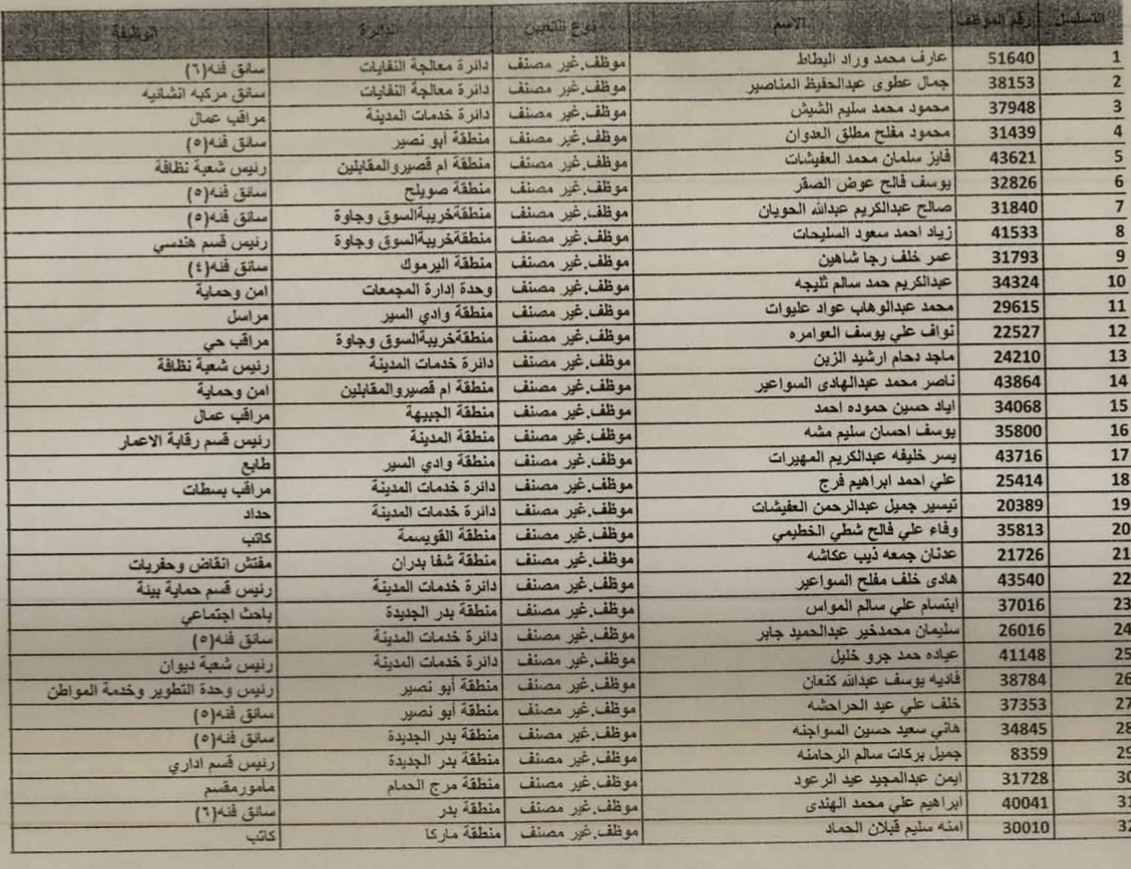 التسلسل رقم الموظف الاسم نوع التعيين الدائرة الوظيفة
1 51640 عارف محمد وراد البطاط موظف.غير مصنف دائرة معالجة النفايات سائق فئه(٦)
2 38153 جمال عطوي عبدالحفيظ المناصير موظف.غير مصنف دائرة معالجة النفايات سائق مركبه انشائيه
3 37948 محمود محمد سليم الشيش موظف.غير مصنف دائرة خدمات المدينة مراقب عمال
4 31439 محمود مفلح مطلق العدوان موظف.غير مصنف منطقة أبو نصير سائق فئه(٥)
5 43621 فايز سلمان محمد العفيشات موظف.غير مصنف منطقة ام قصيروالمقابلين رئيس شعبة نظافة
6 32826 يوسف فالح عوض الصقر موظف.غير مصنف منطقة صويلح سائق فئه(٥)
7 31840 صالح عبدالكريم عبدالله الحويان موظف.غير مصنف منطقةخريبةالسوق وجاوة سائق فئه(٥)
8 41533 زياد احمد سعود السليحات موظف.غير مصنف منطقةخريبةالسوق وجاوة رئيس قسم هندسي
9 31793 عمر خلف رجا شاهين موظف.غير مصنف منطقة اليرموك سائق فئه(٤)
10 34324 عبدالكريم حمد سالم ثليجه موظف.غير مصنف وحدة إدارة المجمعات امن وحماية
11 29615 محمد عبدالوهاب عواد عليوات موظف.غير مصنف منطقة وادي السير مراسل
12 22527 نواف علي يوسف العوامره موظف.غير مصنف منطقةخريبةالسوق وجاوة مراقب حي
13 24210 ماجد دحام ارشيد الزبن موظف.غير مصنف دائرة خدمات المدينة رئيس شعبة نظافة
14 43864 ناصر محمد عبدالهادى السواعير موظف.غير مصنف منطقة ام قصيروالمقابلين امن وحماية
15 34068 اياد حسين حموده احمد موظف.غير مصنف منطقة الجبيهة مراقب عمال
16 35800 يوسف احسان سليم مشه موظف.غير مصنف منطقة المدينة رئيس قسم رقابة الاعمار
17 43716 يسر خليفه عبدالكريم المهيرات موظف.غير مصنف منطقة وادي السير طابع
18 25414 علي احمد ابراهيم فرج موظف.غير مصنف دائرة خدمات المدينة مراقب بسطات
19 20389 تيسير جميل عبدالرحمن العفيشات موظف.غير مصنف دائرة خدمات المدينة حداد
20 35813 وفاء علي فالح شطي الخطيمي موظف.غير مصنف منطقة القويسمة كاتب
21 21726 عدنان جمعه ذيب عكاشه موظف.غير مصنف منطقة شفا بدران مفتش انقاض وحفريات
22 43540 هادى خلف مفلح السواعير موظف.غير مصنف دائرة خدمات المدينة رئيس قسم حماية بيئة
23 37016 ابتسام علي سالم المواس موظف.غير مصنف منطقة بدر الجديدة باحث اجتماعي
24 26016 سليمان محمدخير عبدالحميد جابر موظف.غير مصنف دائرة خدمات المدينة سائق فئه(٥)
25 41148 عياده حمد جرو خليل موظف.غير مصنف دائرة خدمات المدينة رئيس شعبة ديوان
26 38784 فاديه يوسف عبدالله كنعان موظف.غير مصنف منطقة أبو نصير رئيس وحدة التطوير وخدمة المواطن
27 37353 خلف علي عيد الحراحشه موظف.غير مصنف منطقة أبو نصير سائق فئه(٥)
28 34845 هاني سعيد حسين السواجنه موظف.غير مصنف منطقة بدر الجديدة سائق فئه(٥)
29 8359 جميل بركات سالم الرحامنه موظف.غير مصنف منطقة بدر الجديدة رئيس قسم اداري
30 31728 ايمن عبدالمجيد عيد الرعود موظف.غير مصنف منطقة مرج الحمام مأمورمقسم
31 40041 ابراهيم علي محمد الهندى موظف.غير مصنف منطقة بدر سائق فئه(٦)
32 30010 امنه سليم قبلان الحماد موظف.غير مصنف منطقة ماركا كاتب